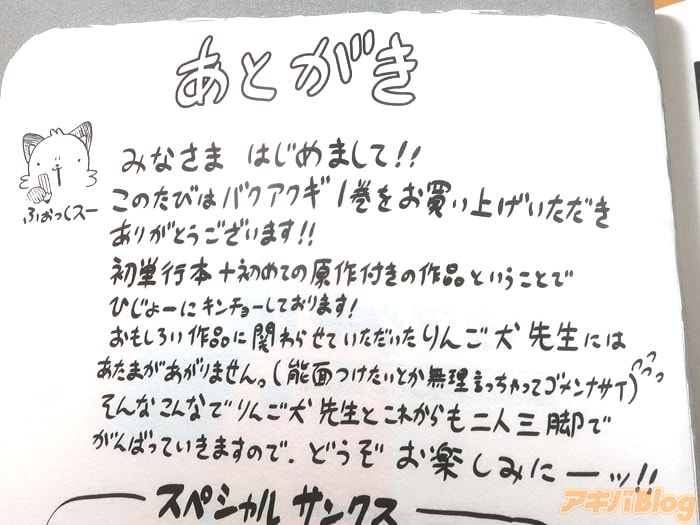 あとがき
みなさま はじめまして!!
ふぉっくスー
このたびはバクアクギ1巻をお買い上げいただき
ありがとうございます!!
初単行本+初めての原作付きの作品ということで
ひじょーにキンチョーしております!
おもしろい作品に関わらせていただいたりんご犬先生には
あたまがあがりません。(能面つけたいとか無理言っちゃってゴメンナサイ)
そんなこんなでりんご犬先生とこれからも二人三脚で
がんばっていきますので、どうぞ お楽しみにーッ!!
スペシャル サンクス
アキバBlog